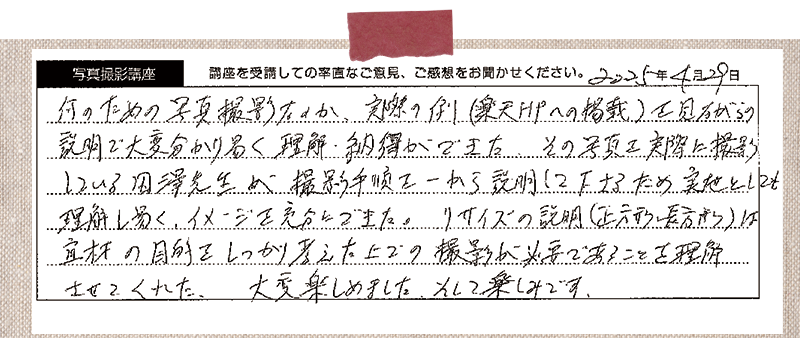 写真撮影講座 講座を受講しての率直なご意見、ご感想をお聞かせください。 2025年4月29日
何のための写真撮影なのか、実際の例(楽天HPへの掲載)を見ながらの
説明で大変分かり易く理解・納得ができた その写真を実際に撮影
している田澤先生が、撮影手順を一から説明して下さるため実地としても
理解し易く、イメージを充分にできた。 リサイズの説明(正方形、長方形)は
宣材の目的をしっかり考えた上での撮影が必要であることを理解
させてくれた、 大変楽しめました、そして楽しみです、